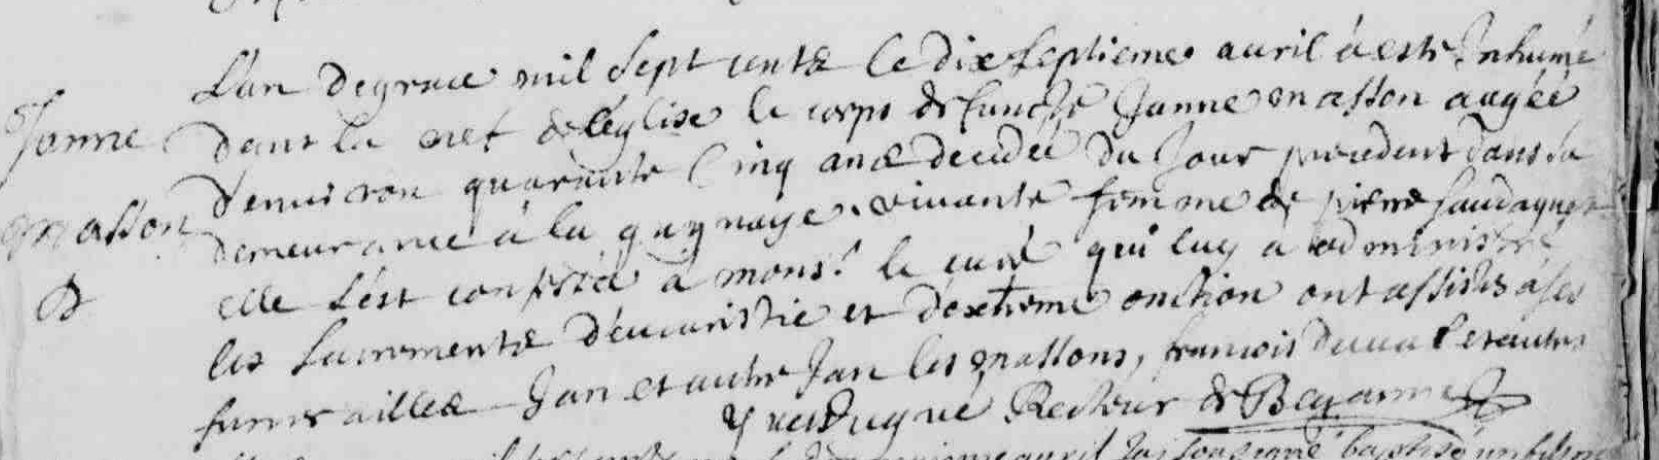 L'an de grace mil sept cents le dix septieme auril à este Inhumé
Janne
dans la nef de l'église le corps de functe Janne masson augéé
d'enuiron quarente Cinq ans decedée du Jour precedent dans sa
masson
demeurance à la gugnaye. viuante femme de pierre
elle s'est confessée a mons.r le curé qui luy a administré
D
les sacrements d'eucaristie et d'extreme onction ont assistés à ses
funerailles Jan et autre Jan les massons, francois duual et autres
Yues Recteur de Beganne